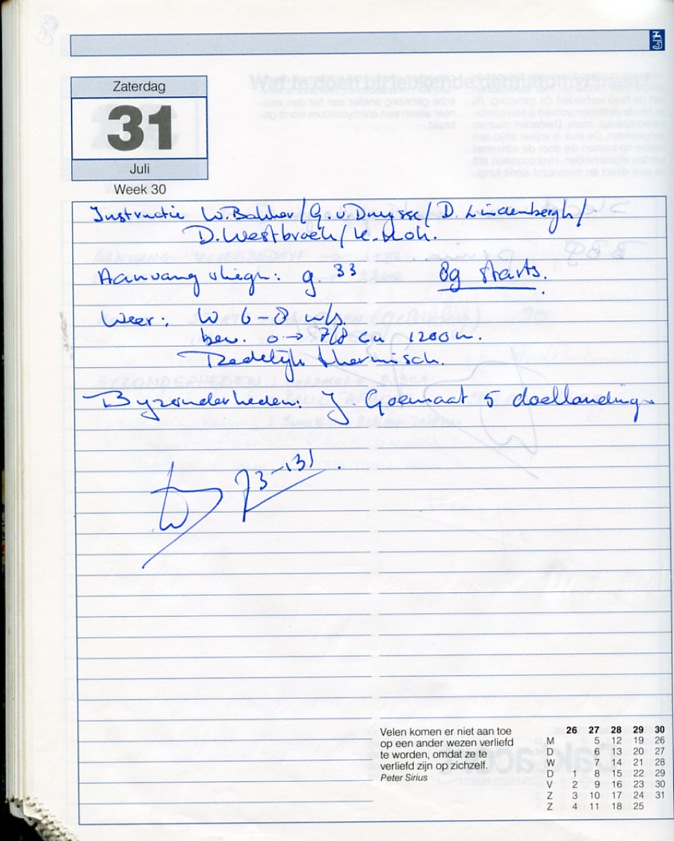 Zaterdag
31
Juli
Week 30
Instructie W. Bakker / G. v Duysse / D. Lindenbergh /
D. Westbroek / K. Mok.
Aanvang vliegn: 9.33 89 starts.
Weer: W 6-8 m/s.
bew. 0 → 7/8 cu 1200 m.
Redelijk thermisch.
Byzonderheden: J. Goemaat 5 doellanding
73-131.
Velen komen er niet aan toe
op een ander wezen verliefd
te worden, omdat ze te
verliefd zijn op zichzelf.
Peter Sirius
26 27 28 29 30
M 5 12 19 26
D 6 13 20 27
W 7 14 21 28
D 1 8 15 22 29
V 2 9 16 23 30
Z 3 10 17 24 31
Z 4 11 18 25